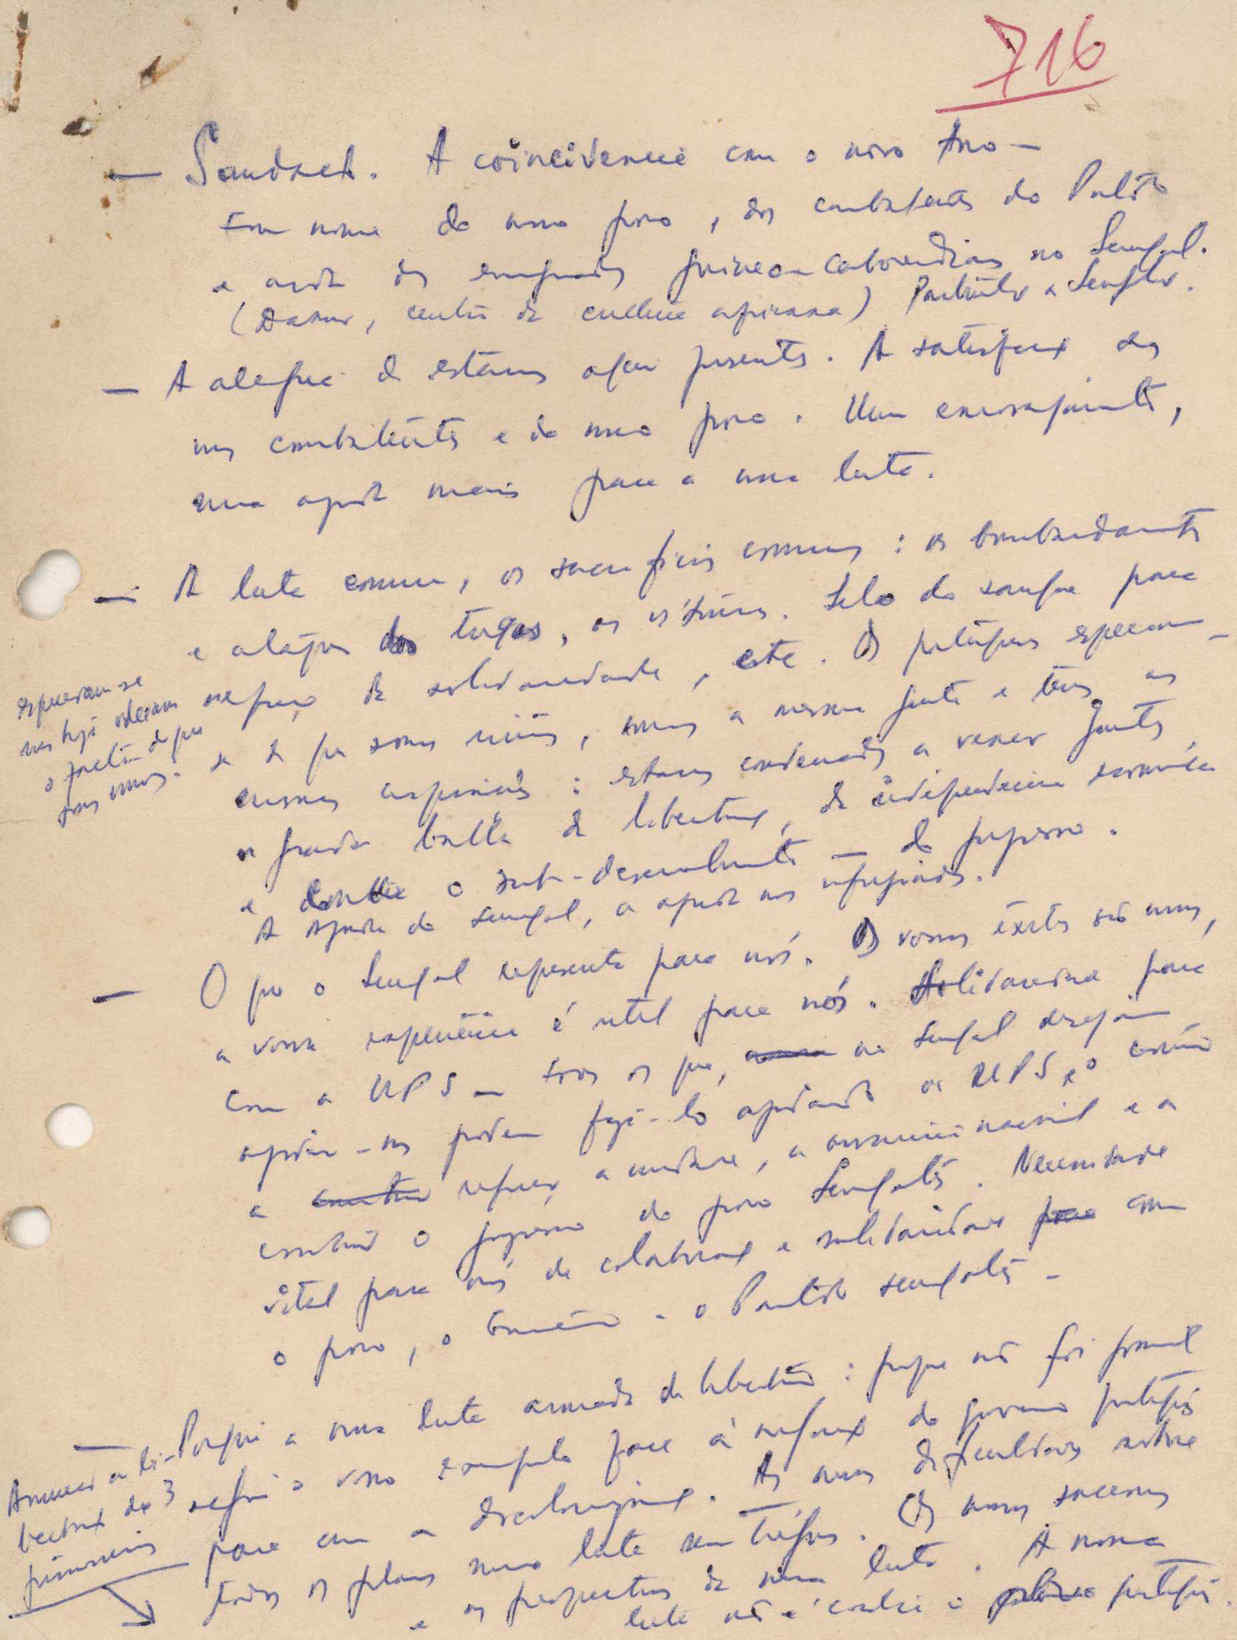 716
— Saudação. A coincidência com o novo Ano —
Em nome do nosso povo, dos combatentes do Partido
e ainda dos emigrados guineo-caboverdianos no Senegal.
(Dakar, centro de cultura africana) Particular a Senghor.
— A alegria de estarmos aqui presentes. A satisfação dos
nos combatentes e do nosso povo. Um encorajamento,
uma ajuda mais para a nossa luta.
— A luta comum, os sacrifícios comuns: os bombardamentos
e ataques dos tugas, as vítimas. Selo do sangue para
reforço da solidariedade, este. Os portugueses esqueceram-
se de que somos unidos, somos a mesma gente e temos as
mesmas aspirações: estamos condenados a vencer juntos
a grande batalha da liberdade, da independência económica
e contra o sub-desenvolvimento — do progresso.
A ajuda do Senegal, a ajuda aos refugiados.
esqueceram-se
mas hoje
o facto de que
somos unidos.
— O que o Senegal representa para nós. Os vossos êxitos são nossos,
a vossa experiência é útil para nós. Solidariedade para
com a UPS — todos os que, no Senegal desejam
ajudar-nos podem fazê-lo ajudando a UPS e o
a reforçar a unidade, a consciência nacional e a
construir o progresso do povo Senegalês. Necessidade
vital para nós da colaboração e solidariedade com
o povo, o Governo e o Partido senegalês —
— Porquê a nossa luta armada de libertação: porque não foi possível
seguir o vosso exemplo face à do governo português
para com a descolonização. As nossas dificuldades sobre
todos os planos numa luta sem tréguas. Os nossos sucessos
e as perspectivas da nossa luta. A nossa
luta não é contra o povo português.
Anunciar a li-
bertação de 3
prisioneiros